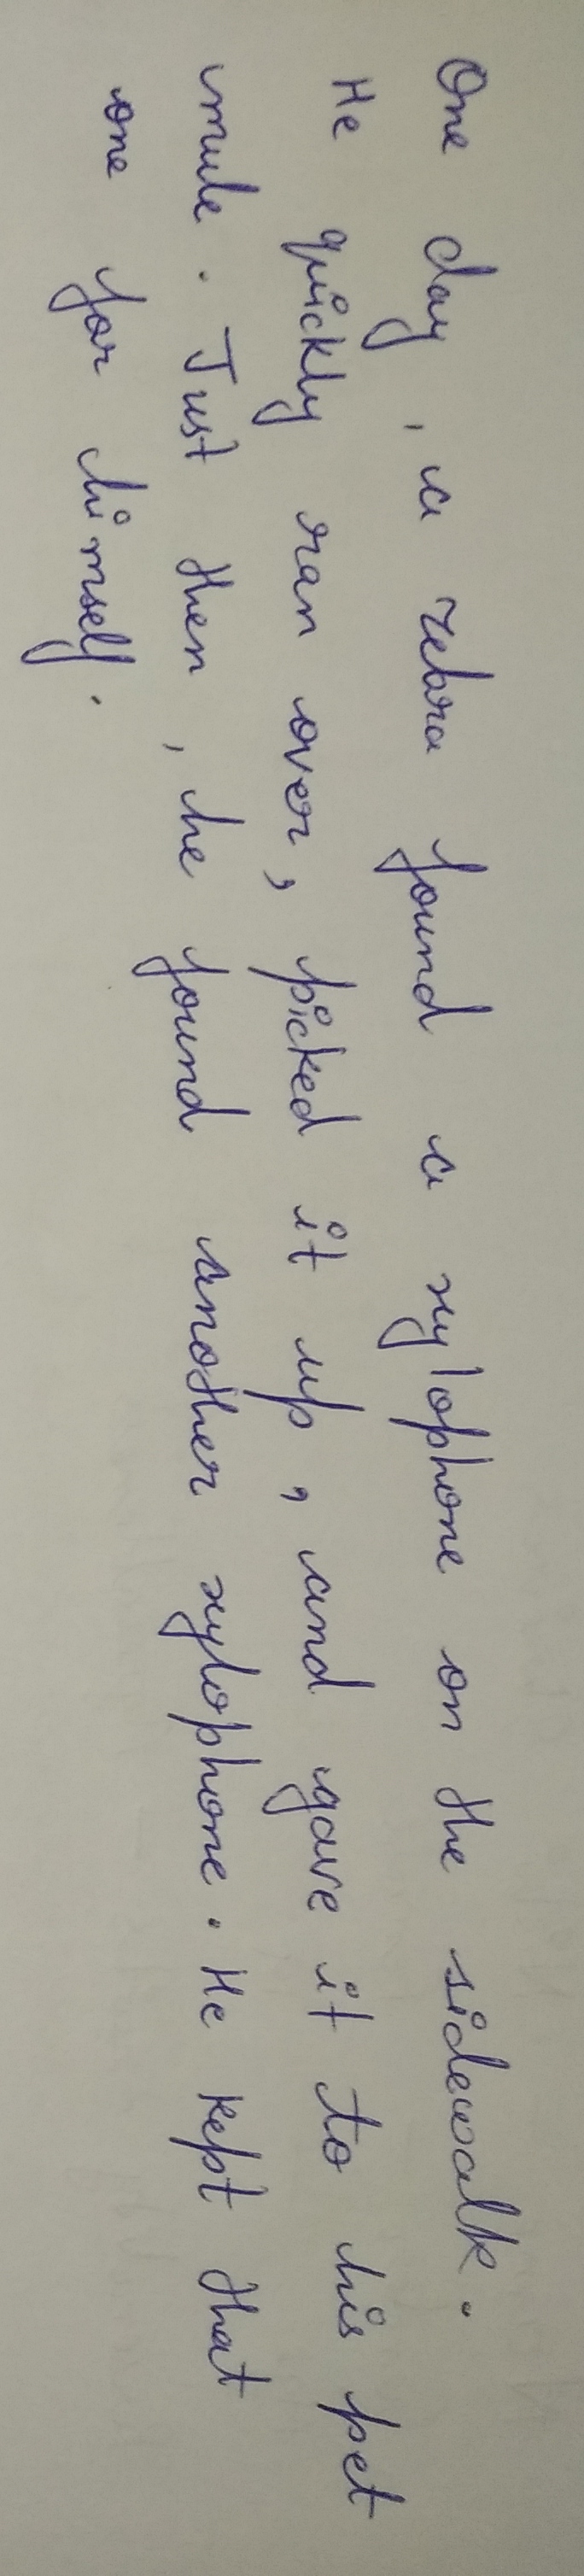 One day, a zebra found a xylophone on the sidewalk.
He quickly ran over, picked it up, and gave it to his pet
mule. Just then, he found another xylophone. He kept that
one for himself.